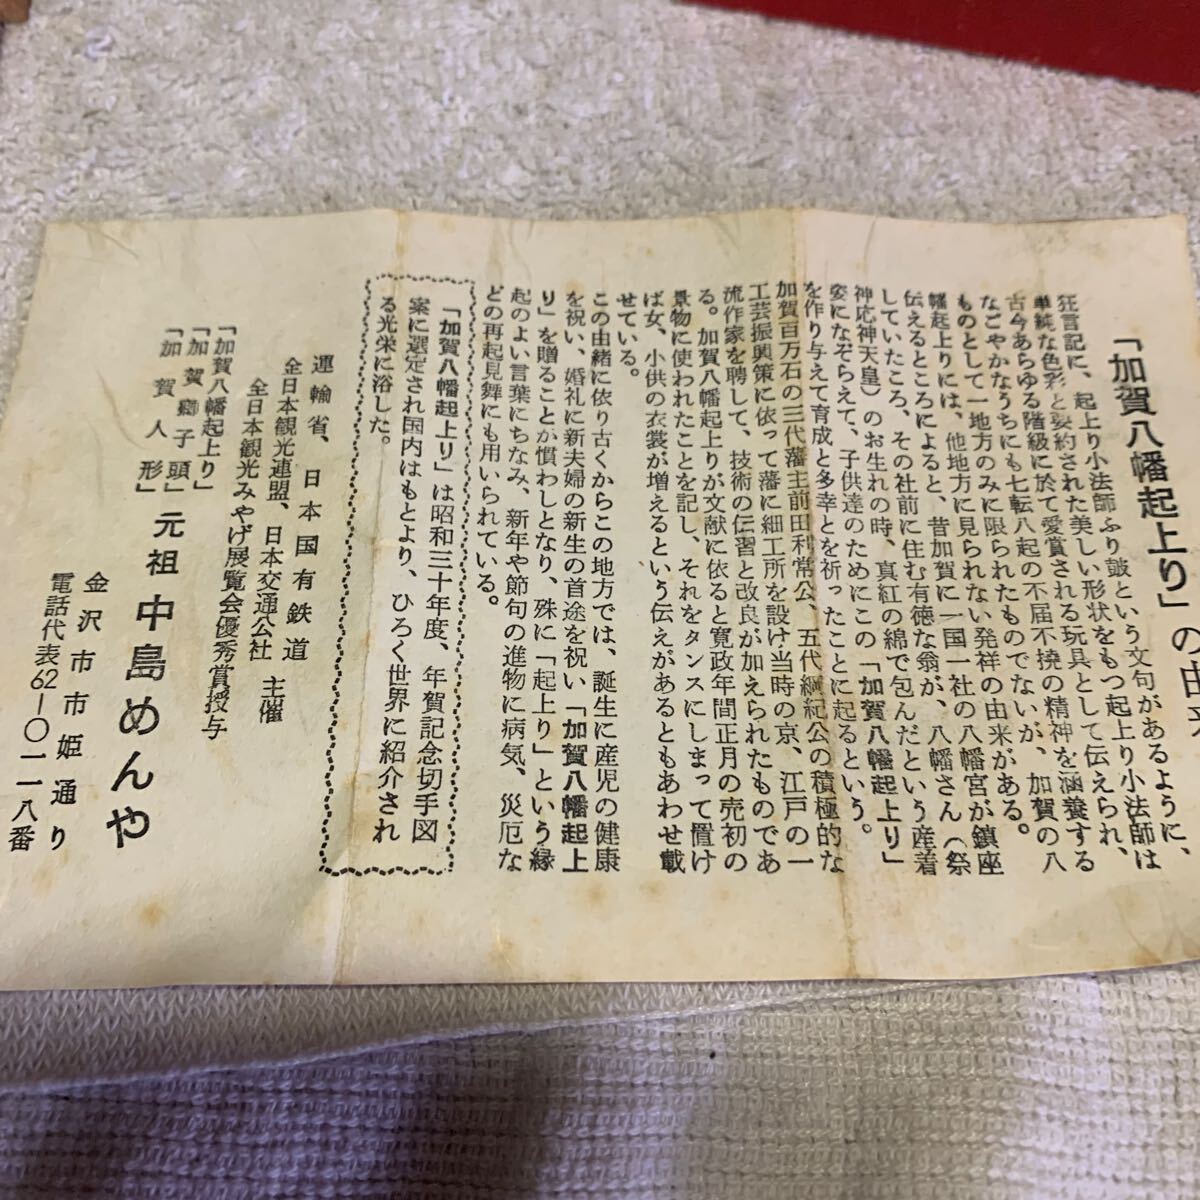 「加賀八幡起上り」の由来
狂言記に、起上り小法師ふり鼓という文句があるように、
単純な色彩と要約された美しい形状をもつ起上り小法師は
古今あらゆる階級に於て愛賞される玩具として伝えられ、
なごやかなうちにも七転八起の不屈不撓の精神を涵養する
ものとして一地方のみに限られたものでないが、加賀の八
幡起上りには、他地方に見られない発祥の由来がある。
伝えるところによると、昔加賀に一国一社の八幡宮が鎮座
していたころ、その社前に住む有徳な翁が、八幡さん（祭
神応神天皇）のお生れの時、真紅の綿で包んだという産着
姿になぞらえて、子供達のためにこの「加賀八幡起上り」
を作り与えて育成と多幸とを祈ったことに起るという。
加賀百万石の三代藩主前田利常公、五代綱紀公の積極的な
工芸振興策に依って藩に細工所を設け当時の京、江戸の一
流作家を聘して、技術の伝習と改良が加えられたものであ
る。加賀八幡起上りが文献に依ると寛政年間正月の売初の
景物に使われたことを記し、それをタンスにしまって置け
ば女、小供の衣裳が増えるという伝えがあるともあわせ載
せている。
この由緒に依り古くからこの地方では、誕生に産児の健康
を祝い、婚礼に新夫婦の新生の首途を祝い「加賀八幡起上
り」を贈ることが慣わしとなり、殊に「起上り」という縁
起のよい言葉にちなみ、新年や節句の進物に病気、災厄な
どの再起見舞にも用いられている。
「加賀八幡起上り」は昭和三十年度、年賀記念切手図
案に選定され国内はもとより、ひろく世界に紹介され
る光栄に浴した。
運輸省、日本国有鉄道
全日本観光連盟、日本交通公社 主催
全日本観光みやげ展覧会優秀賞授与
「加賀八幡起上り」
「加賀獅子頭」
「加賀人形」
元祖 中島めんや
金沢市市姫通り
電話代表62－〇一一八番